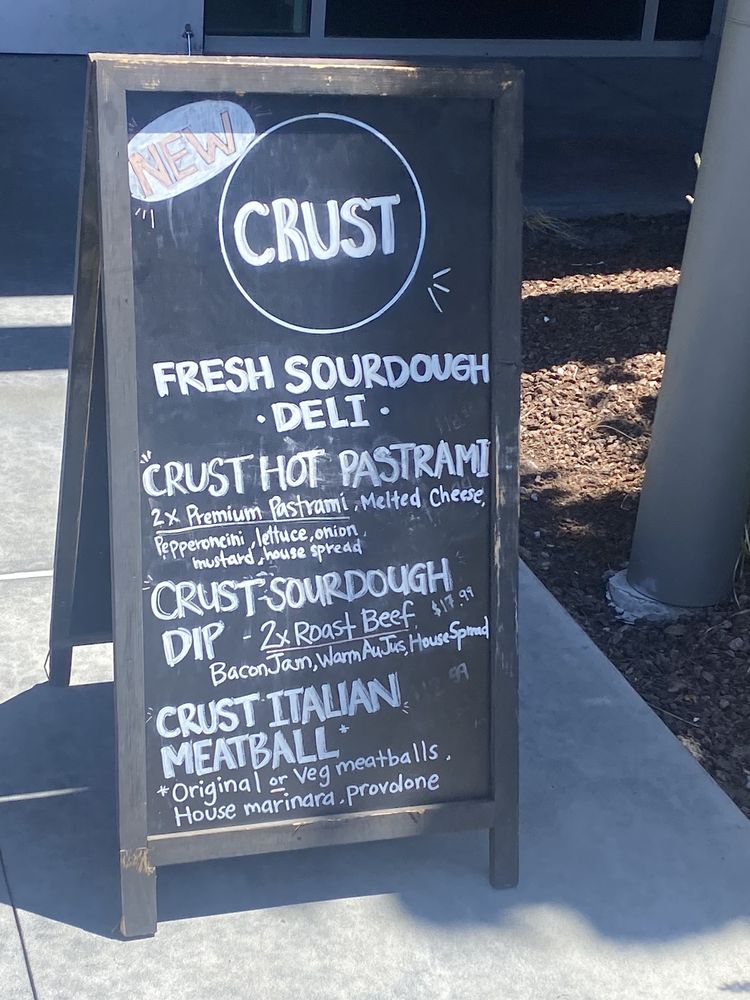 NEW
CRUST
FRESH SOURDOUGH
• DELI •
CRUST HOT PASTRAMI
2x Premium Pastrami, Melted Cheese,
Pepperoncini, lettuce, onion,
mustard, house spread
CRUST SOURDOUGH
DIP - 2x Roast Beef, $17.99
Bacon Jam, Warm Au Jus, House Spread
CRUST ITALIAN
MEATBALL*
*Original or Veg meatballs,
House marinara, provolone